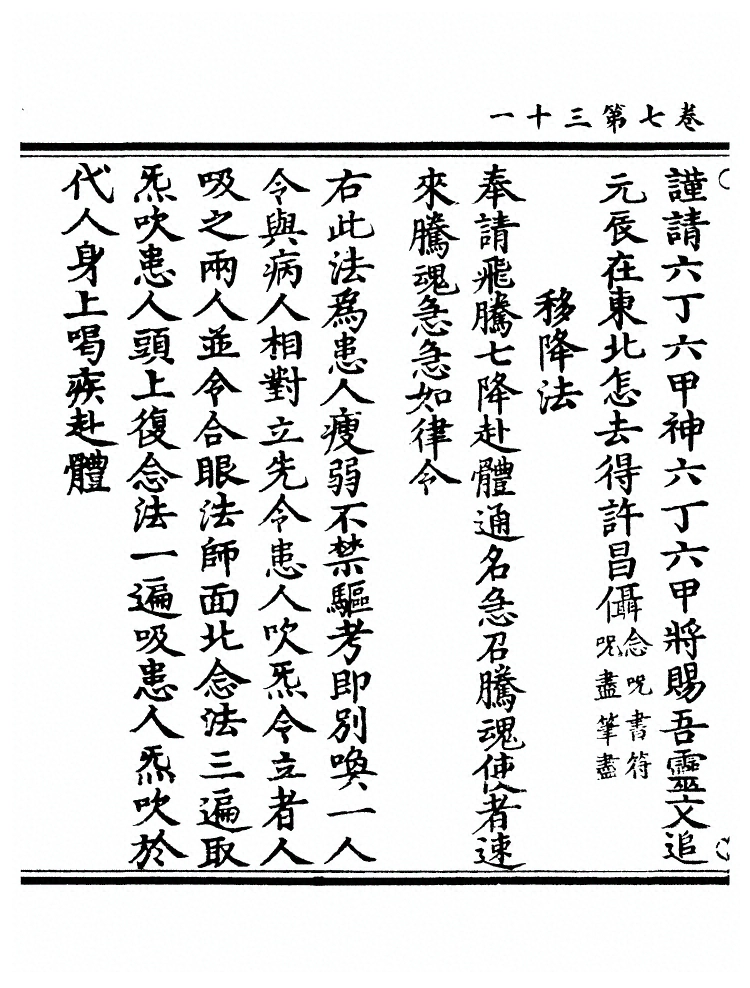 卷七第三十一
謹請六丁六甲神六丁六甲將賜吾靈文追
元辰在東北怎去得許昌儑念呪書符呪盡筆盡
移降法
奉請飛騰七降赴體通名急召騰魂使者速
來騰魂急急如律令
右此法為患人瘦弱不禁驅考即別喚一人
令與病人相對立先令患人吹炁令立者人
吸之兩人並令合眼法師面北念法三遍取
炁吹患人頭上復念法一遍吸患人炁吹於
代人身上喝疾赴體